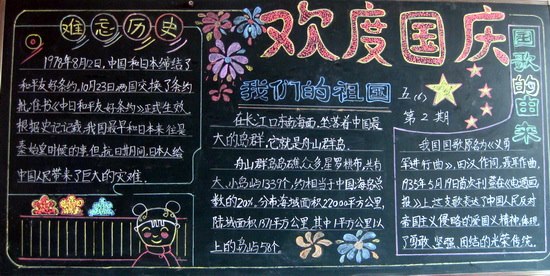 难忘历史
1978年8月12日,中国和日本缔结了
和平友好条约,10月23日两国交换了条约
批准书《中日和平友好条约》正式生效
根据史记记载,我国最早和日本来往是
秦始皇时候的事。但抗日期间,日本人给
中国人民带来了巨大的灾难。
欢度国庆
我们的祖国
五(6)
第2期
在长江口东南海面,坐落着中国最
大的岛群,它就是舟山群岛。
舟山群岛岛礁众多,星罗棋布,共有
大、小岛屿1339个,约相当于中国海岛总
数的20%,分布海域面积22000平方公里,
陆域面积1371平方公里。其中1平方公里以
上的岛屿58个。
国歌的由来
我国国歌原名为《义勇
军进行曲》,田汉作词,聂耳作曲,
1935年5月19日首次刊登在《电通画
报》上。这首歌表达了中国人民反对
帝国主义侵略的爱国义精神,体现
了勇敢、坚强、团结的光荣传统。